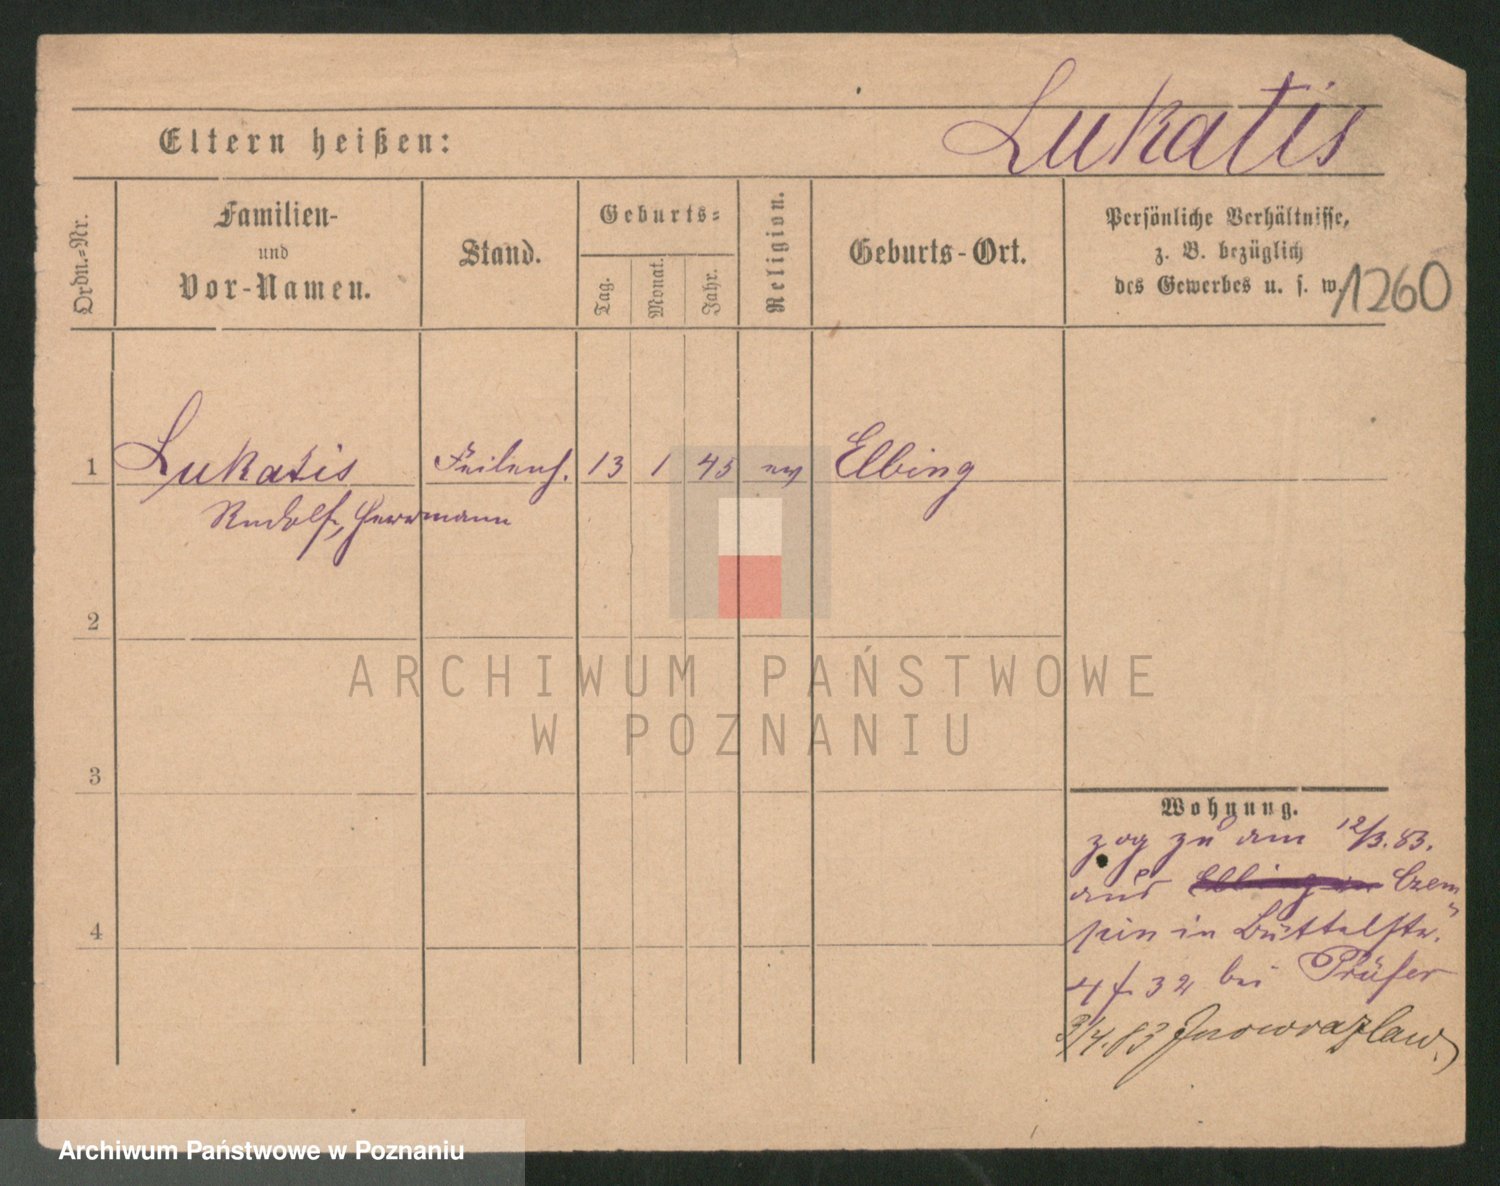 Lukatis
Eltern heißen:
Ordn.-Nr.
Familien-
und
Vor-Namen.
Stand.
Geburts-
Tag.
Monat.
Jahr.
Religion.
Geburts-Ort.
Persönliche Verhältnisse,
z. B. bezüglich
des Gewerbes u. s. w.
1260
1 Lukatis Feilenh. 13 1 45 ev Elbing
Rudolf, Herrmann
2
ARCHIWUM PAŃSTWOWE
W POZNANIU
3
Wohnung.
zog zu am 12/3.83.
aus Elbing in Czem„
pin in Büttelstr.
4 f 32 bei Prüfer
4
3/4.83 Inowrazlaw.
Archiwum Państwowe w Poznaniu